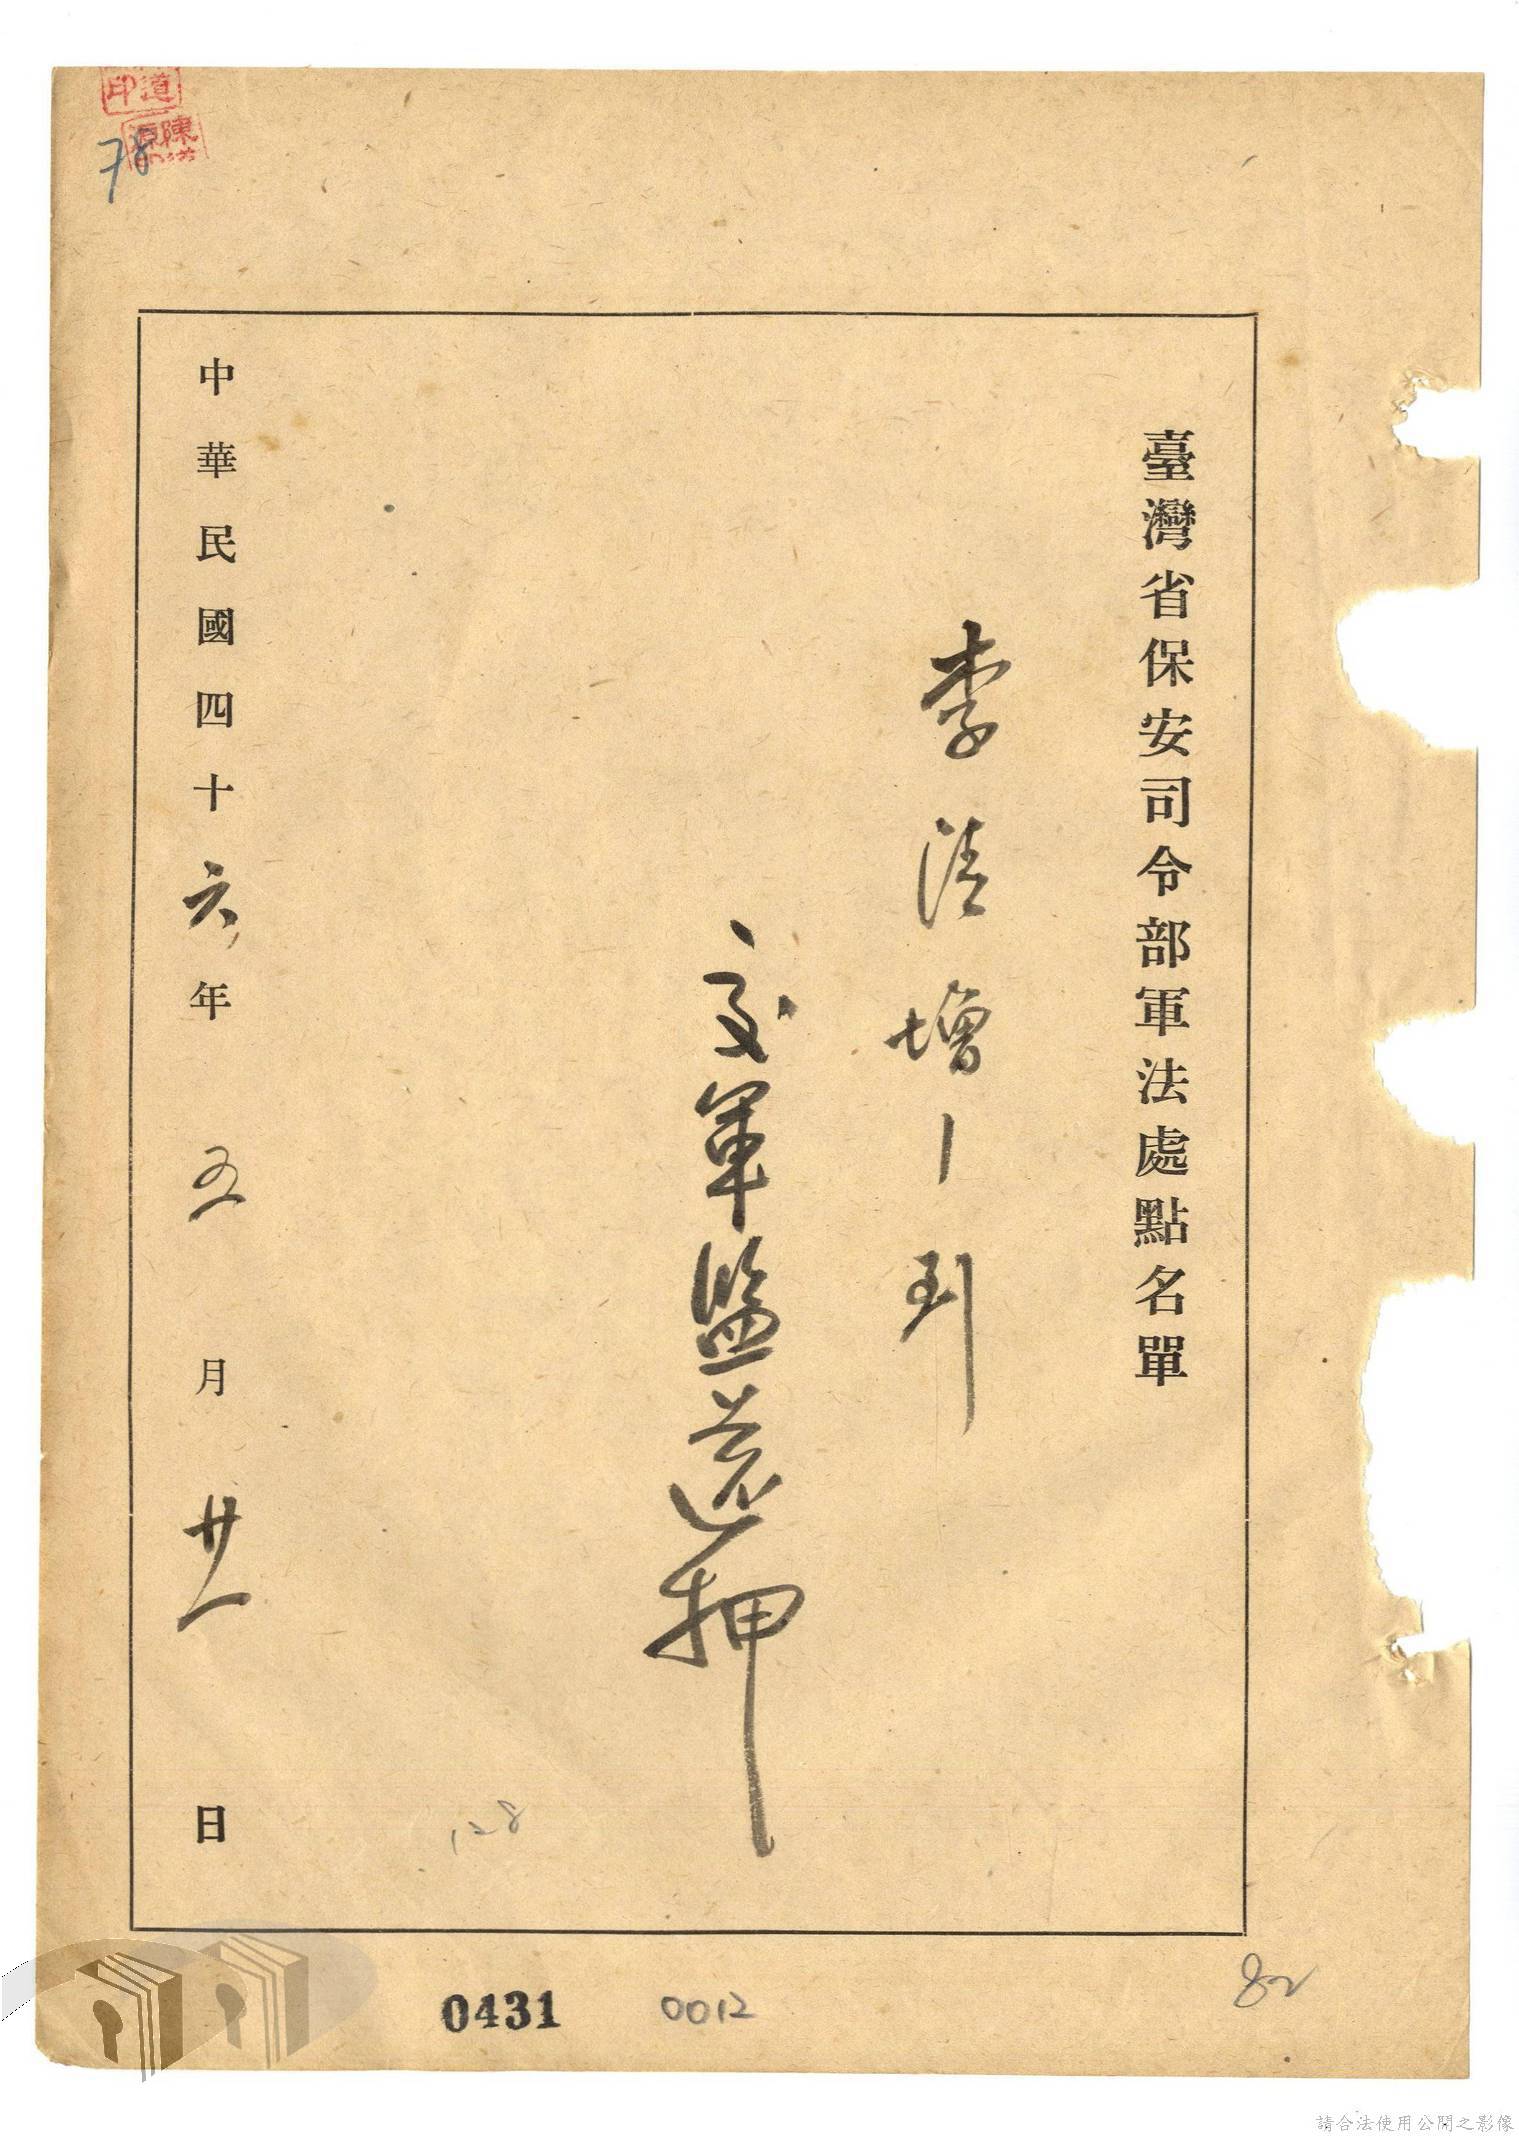 臺灣省保安司令部軍法處點名單
李清增 到
交軍監還押
中華民國四十六年五月廿一日
道印
陳
78
128
0431
0012
82
請合法使用公開之影像